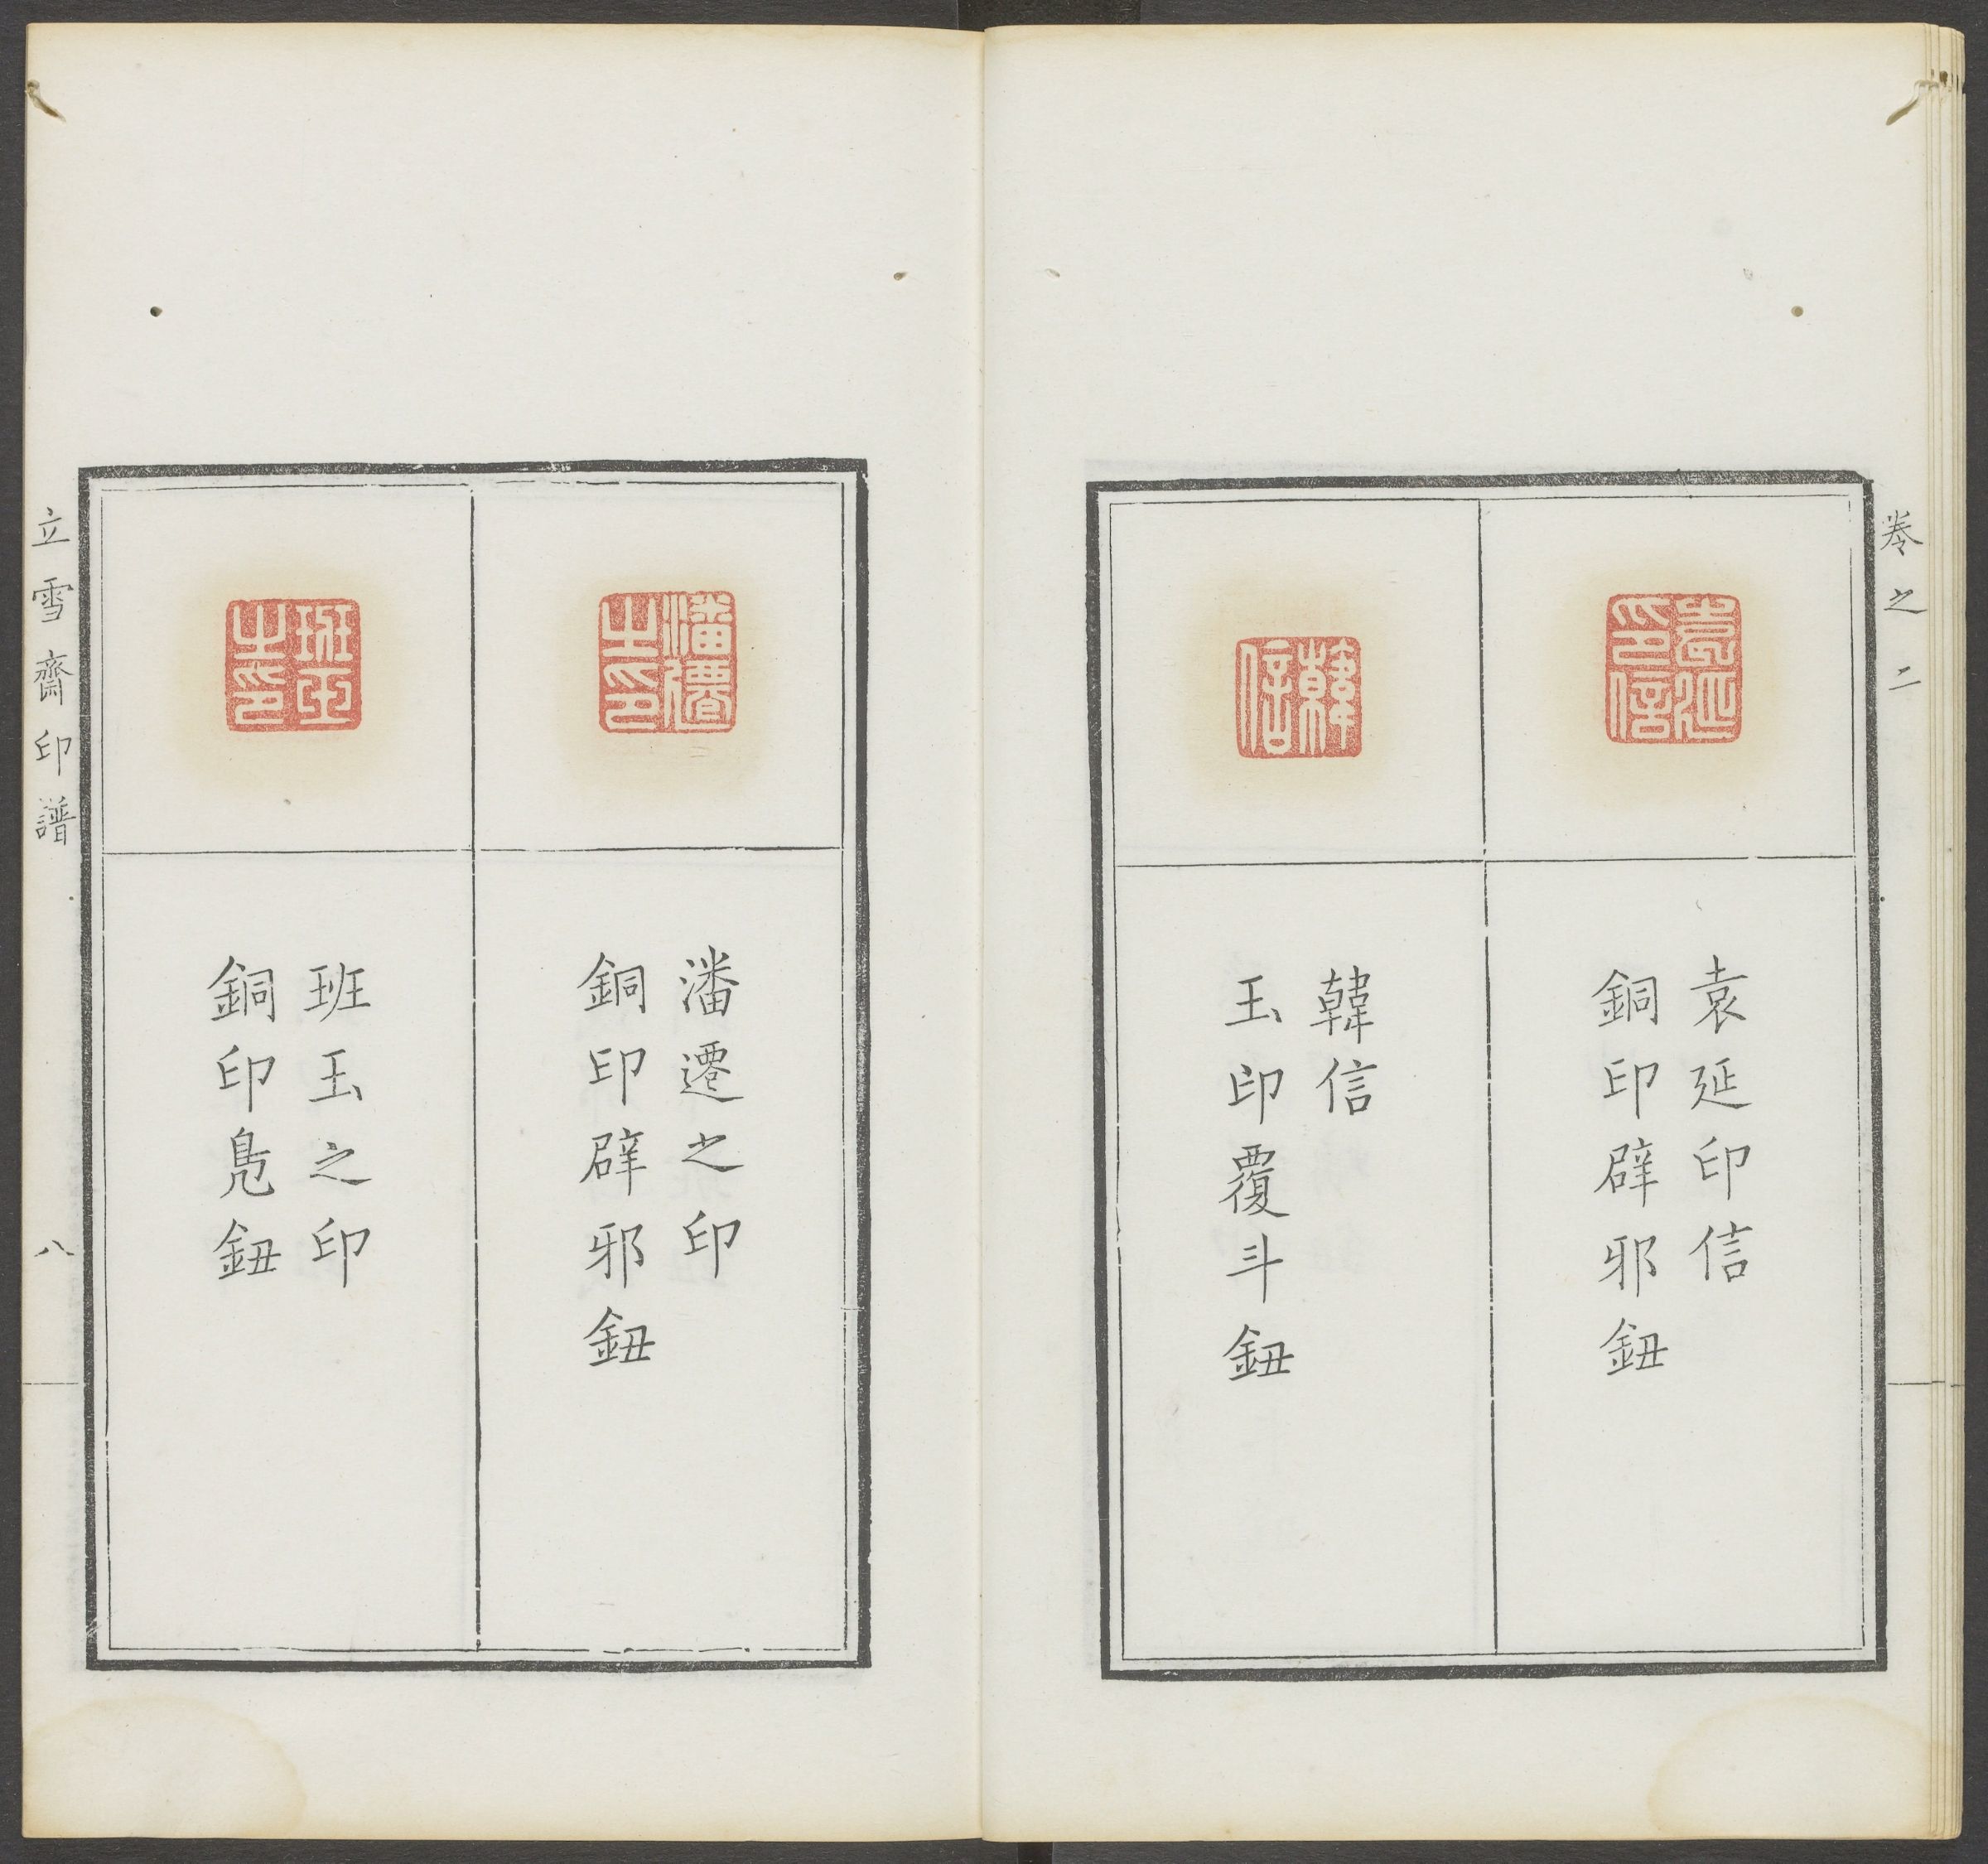 卷之二
袁延印信
袁延印信
銅印辟邪鈕
韓信
韓信
玉印覆斗鈕
潘遷之印
潘遷之印
銅印辟邪鈕
班玉之印
班玉之印
銅印鳧鈕
立雪齋印譜
八